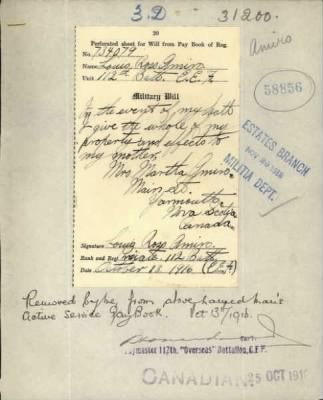 3.D
31200.
Amiro
20
Perforated sheet for Will from Pay Book of Reg.
No. 734079
Name Louis Ross Amiro.
Unit 112th Batt. C.E.F.
58856
Military Will
In the event of my death
I give the whole of my
property and effects to
my mother,
Mrs Martha Amiro.
Main St.
Yarmouth.
Nova Scotia
Canada.
ESTATES BRANCH
MILITIA DEPT.
Signature Louis Ross Amiro.
Rank and Reg. Private. 112 Batt.
Date October 13. 1916 (C.E.F.)
Removed by me from above named man's
Active Service Pay Book. Oct 13th/1916.
Capt.
Paymaster 112th. "Overseas" Battalion, C.E.F.
CANADIAN
25 OCT 191